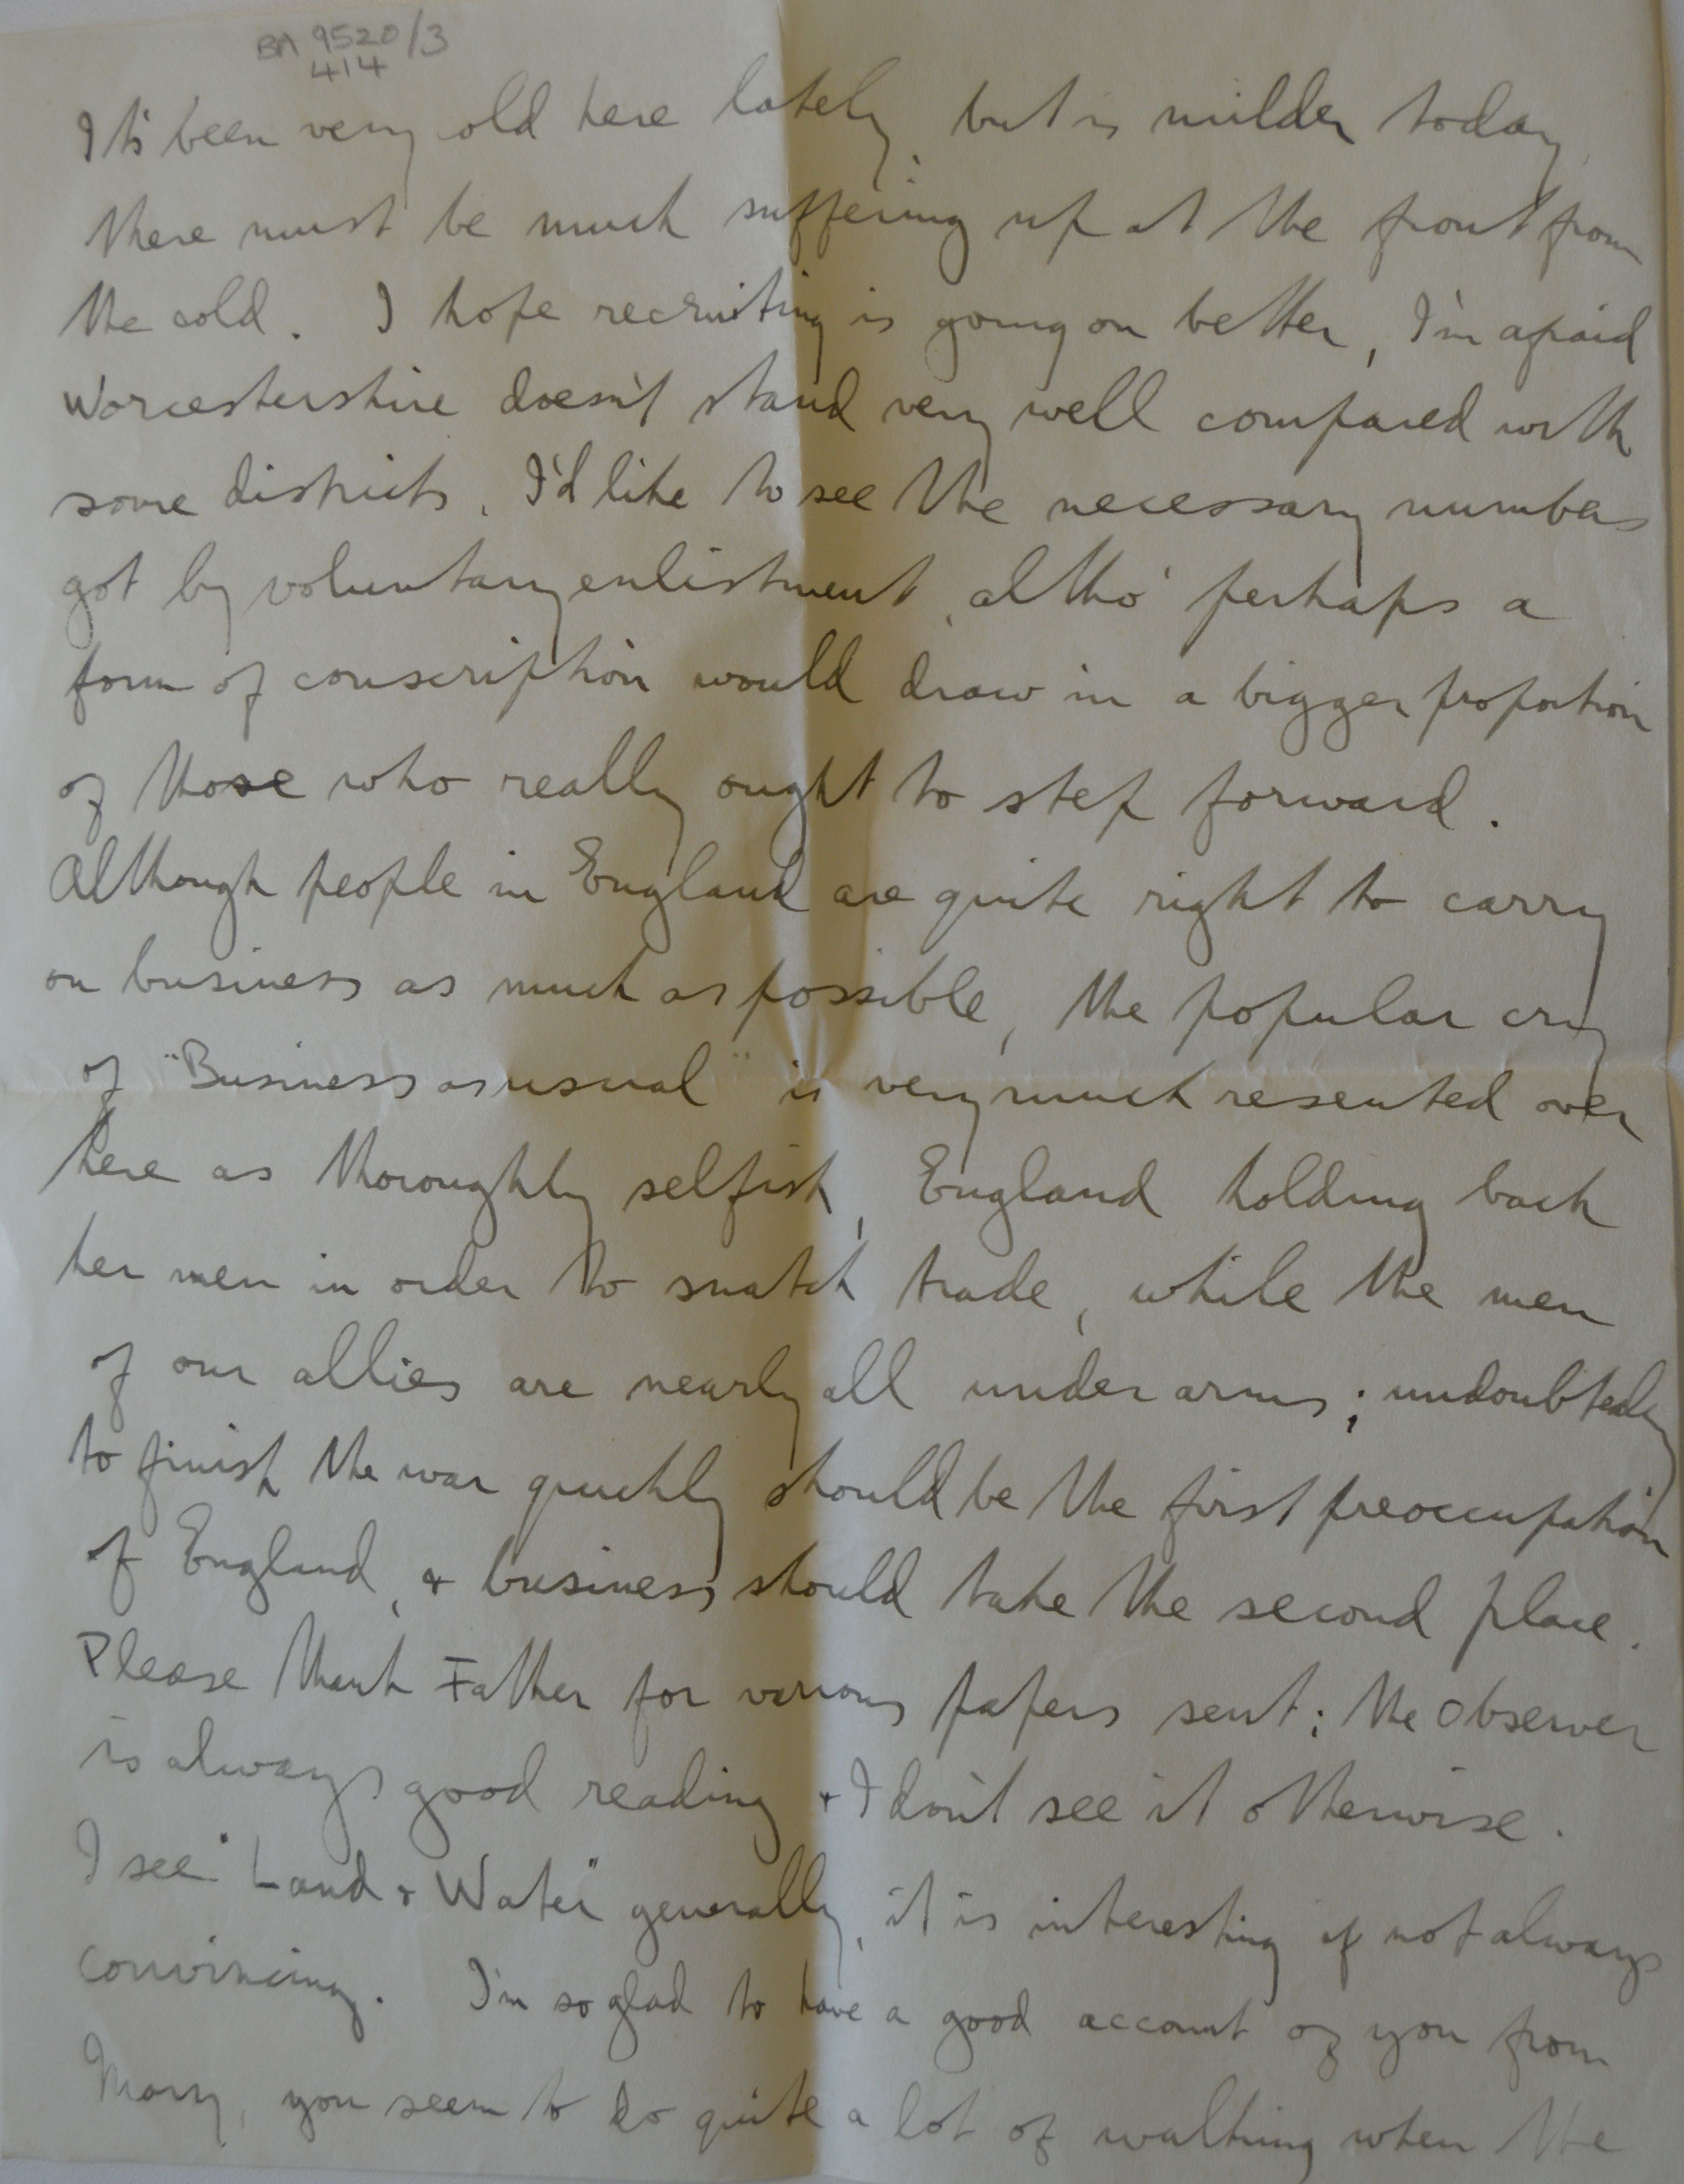 BA 9520/3
414
Its been very cold here lately, but is milder today,
there must be much suffering up at the front from
the cold. I hope recruiting is going on better, I'm afraid
Worcestershire doesn't stand very well compared with
some districts. I'd like to see the necessary numbers
got by voluntary enlistment, altho' perhaps a
form of conscription would draw in a bigger proportion
of those who really ought to step forward.
Although people in England are quite right to carry
on business as much as possible, the popular cry
of "Business as usual" is very much resented over
here as thoroughly selfish, England holding back
her men in order to snatch trade, while the men
of our allies are nearly all under arms; undoubtedly
to finish the war quickly should be the first preoccupation
of England, & business should take the second place.
Please thank Father for various papers sent; the Observer
is always good reading & I don't see it otherwise.
I see "Land & Water" generally, it is interesting if not always
convincing. I'm so glad to have a good account of you from
Mary, you seem to do quite a lot of walking when the